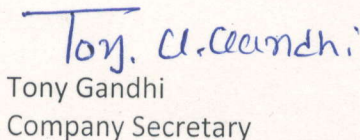 Tony. U. Gandhi
Tony Gandhi
Company Secretary